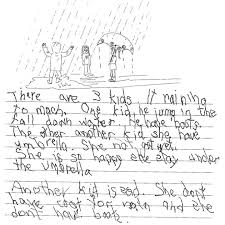 There are 3 kids It raining
to mach. One kid he jump in the
fall down water. He have boots.
The other another kid she have
umbrella. She not get wet.
She is so happy she stay under
the umbrella
Another kid is sad. She don't
have coat for rain and she
don't have boots.